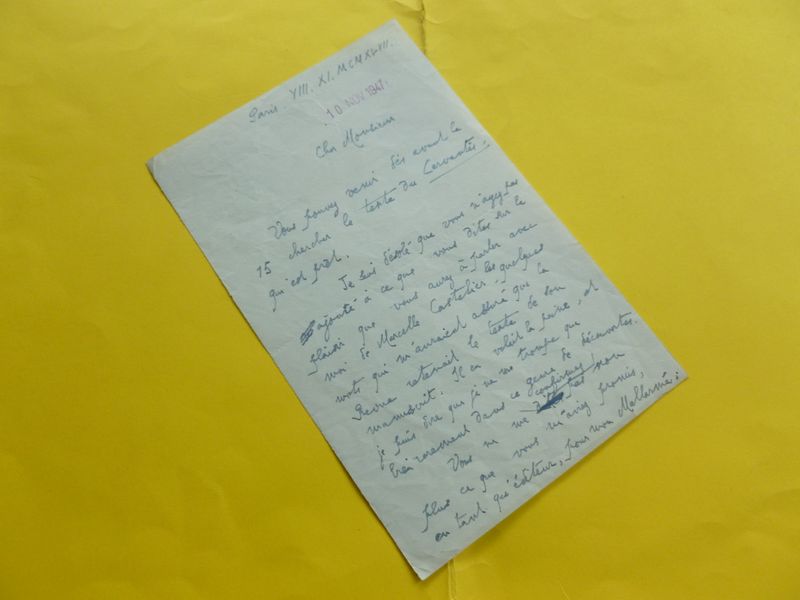 Paris. VIII. XI. MCMXLVII.
10 NOV 1947
Cher Monsieur
Vous pouvez venir dès avant le
15 chercher le texte du Cervantès :
qui est prêt.
Je suis désolé que vous n'ayez pas
ajouté à ce que vous dites sur le
plaisir que vous aurez à parler avec
moi de Marcelle Castelier les quelques
mots qui m'auraient assuré que la
Revue retenait le texte de son
manuscrit. Il en valait la peine, et
je puis dire que je ne me trompe que
bien rarement dans ce genre de découvertes.
Vous ne me confirmez pas non
plus ce que vous m'avez promis,
en tant qu'éditeur, pour mon Mallarmé :